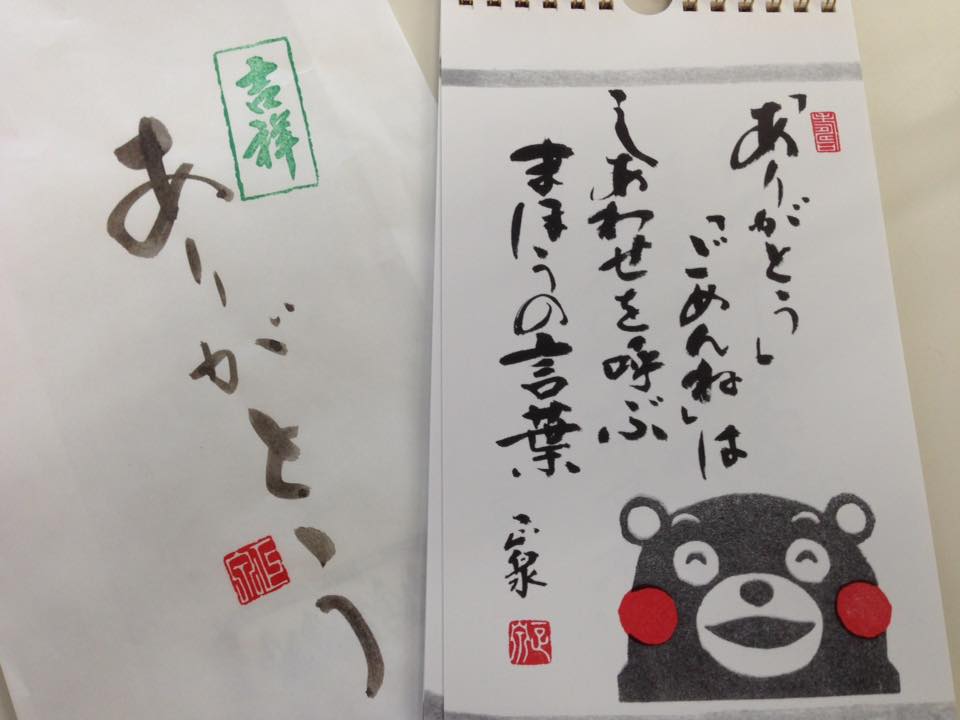 吉祥
ありがとう
「ありがとう」
「ごめんね」は
しあわせを呼ぶ
まほうの言葉
正泉